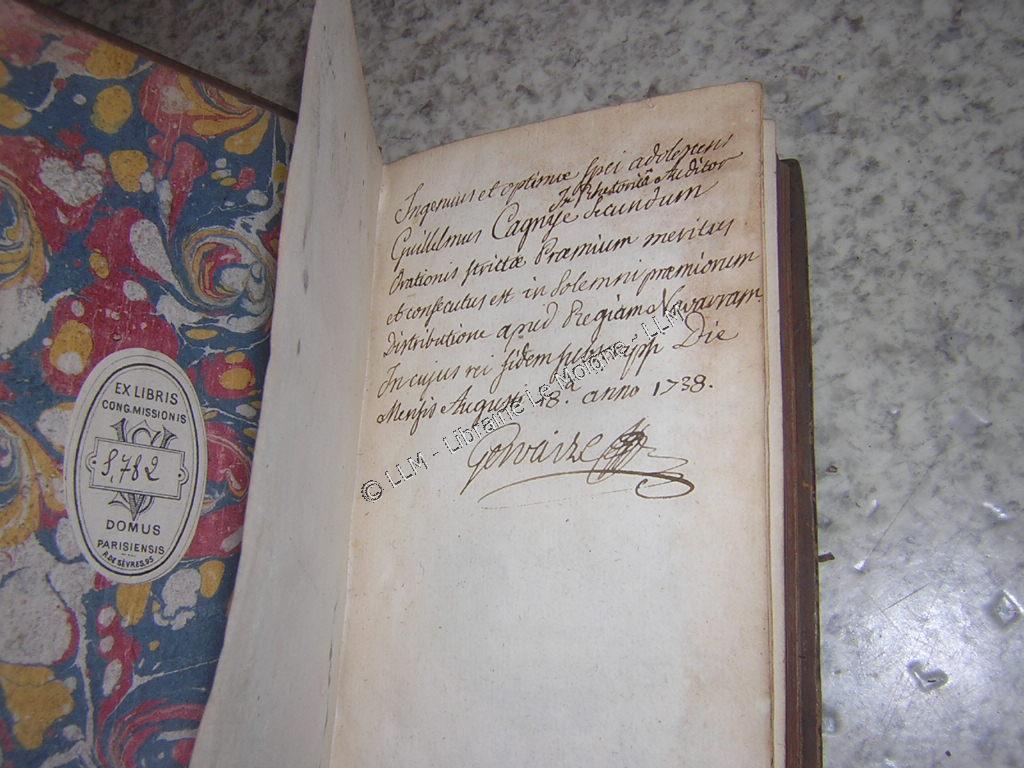 EX LIBRIS
CONG. MISSIONIS
S.782
DOMUS
PARISIENSIS
R. DE SÈVRES, 95
Ingenuus et optimæ spei adolescens
In Rhetoricâ Auditor
Guillelmus Cagnyé secundum
Orationis strictæ Præmium meritus
et consecutus est in solemni præmiorum
Distributione apud Regiam Navarram
In cujus rei fidem Die
Mensis Augusti 18.â anno 1738.
Gervaize
© LLM - Librairie Le Moigne - LLM